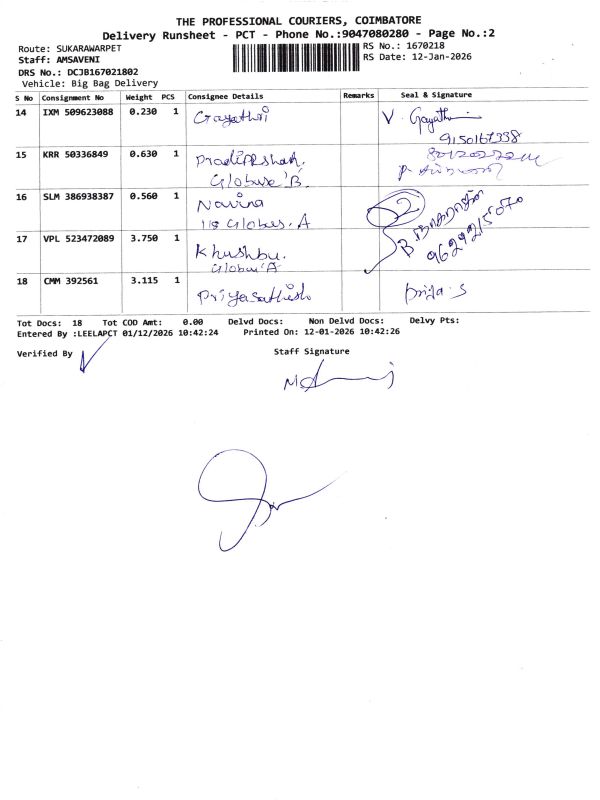 THE PROFESSIONAL COURIERS, COIMBATORE
Delivery Runsheet - PCT - Phone No.:9047080280 - Page No.:2
Route: SUKARAWARPET
RS No.: 1670218
Staff: AMSAVENI
RS Date: 12-Jan-2026
DRS No.: DCJB167021802
Vehicle: Big Bag Delivery
S No Consignment No Weight PCS Consignee Details Remarks Seal & Signature
14 IXM 509623088 0.230 1 Gayathri V. Gayathri
9150167338
15 KRR 50336849 0.630 1
Globus 'B'.
16 SLM 386938387 0.560 1 Navina
Globus. A 9629215070
17 VPL 523472089 3.750 1 Khushbu.
Globus 'A'
18 CMM 392561 3.115 1 Priyasathish priya.S
Tot Docs: 18 Tot COD Amt: 0.00 Delvd Docs: Non Delvd Docs: Delvy Pts:
Entered By :LEELAPCT 01/12/2026 10:42:24 Printed On: 12-01-2026 10:42:26
Verified By
Staff Signature